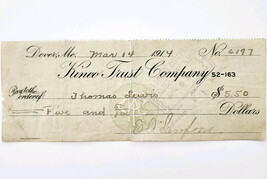 Dover, Mo. Mar 14 1914 No.
Trust Company 52-163
Pay to the order of Thomas Lewis $5.50
Five and
Dollars